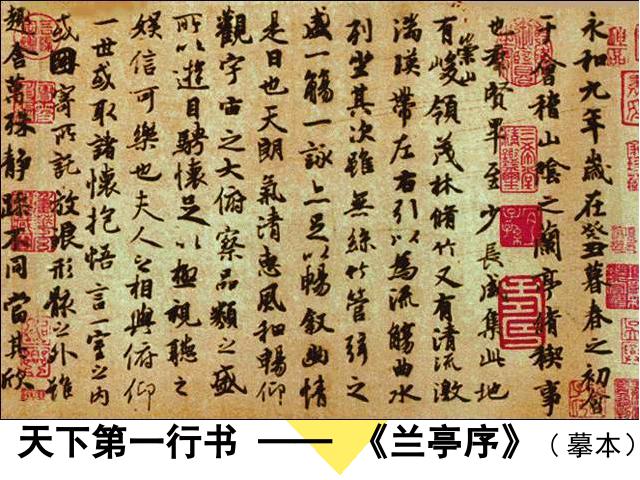 永和九年歲在癸丑暮春之初會
于會稽山陰之蘭亭脩稧事
也羣賢畢至少長咸集此地
有崇山峻領茂林脩竹又有清流激
湍暎帶左右引以為流觴曲水
列坐其次雖無絲竹管弦之
盛一觴一詠亦足以暢敘幽情
是日也天朗氣清惠風和暢仰
觀宇宙之大俯察品類之盛
所以遊目騁懷足以極視聽之
娛信可樂也夫人之相與俯仰
一世或取諸懷抱悟言一室之內
或因寄所託放浪形骸之外雖
趣舍萬殊靜躁不同當其欣
天下第一行书 —— 《兰亭序》（摹本）